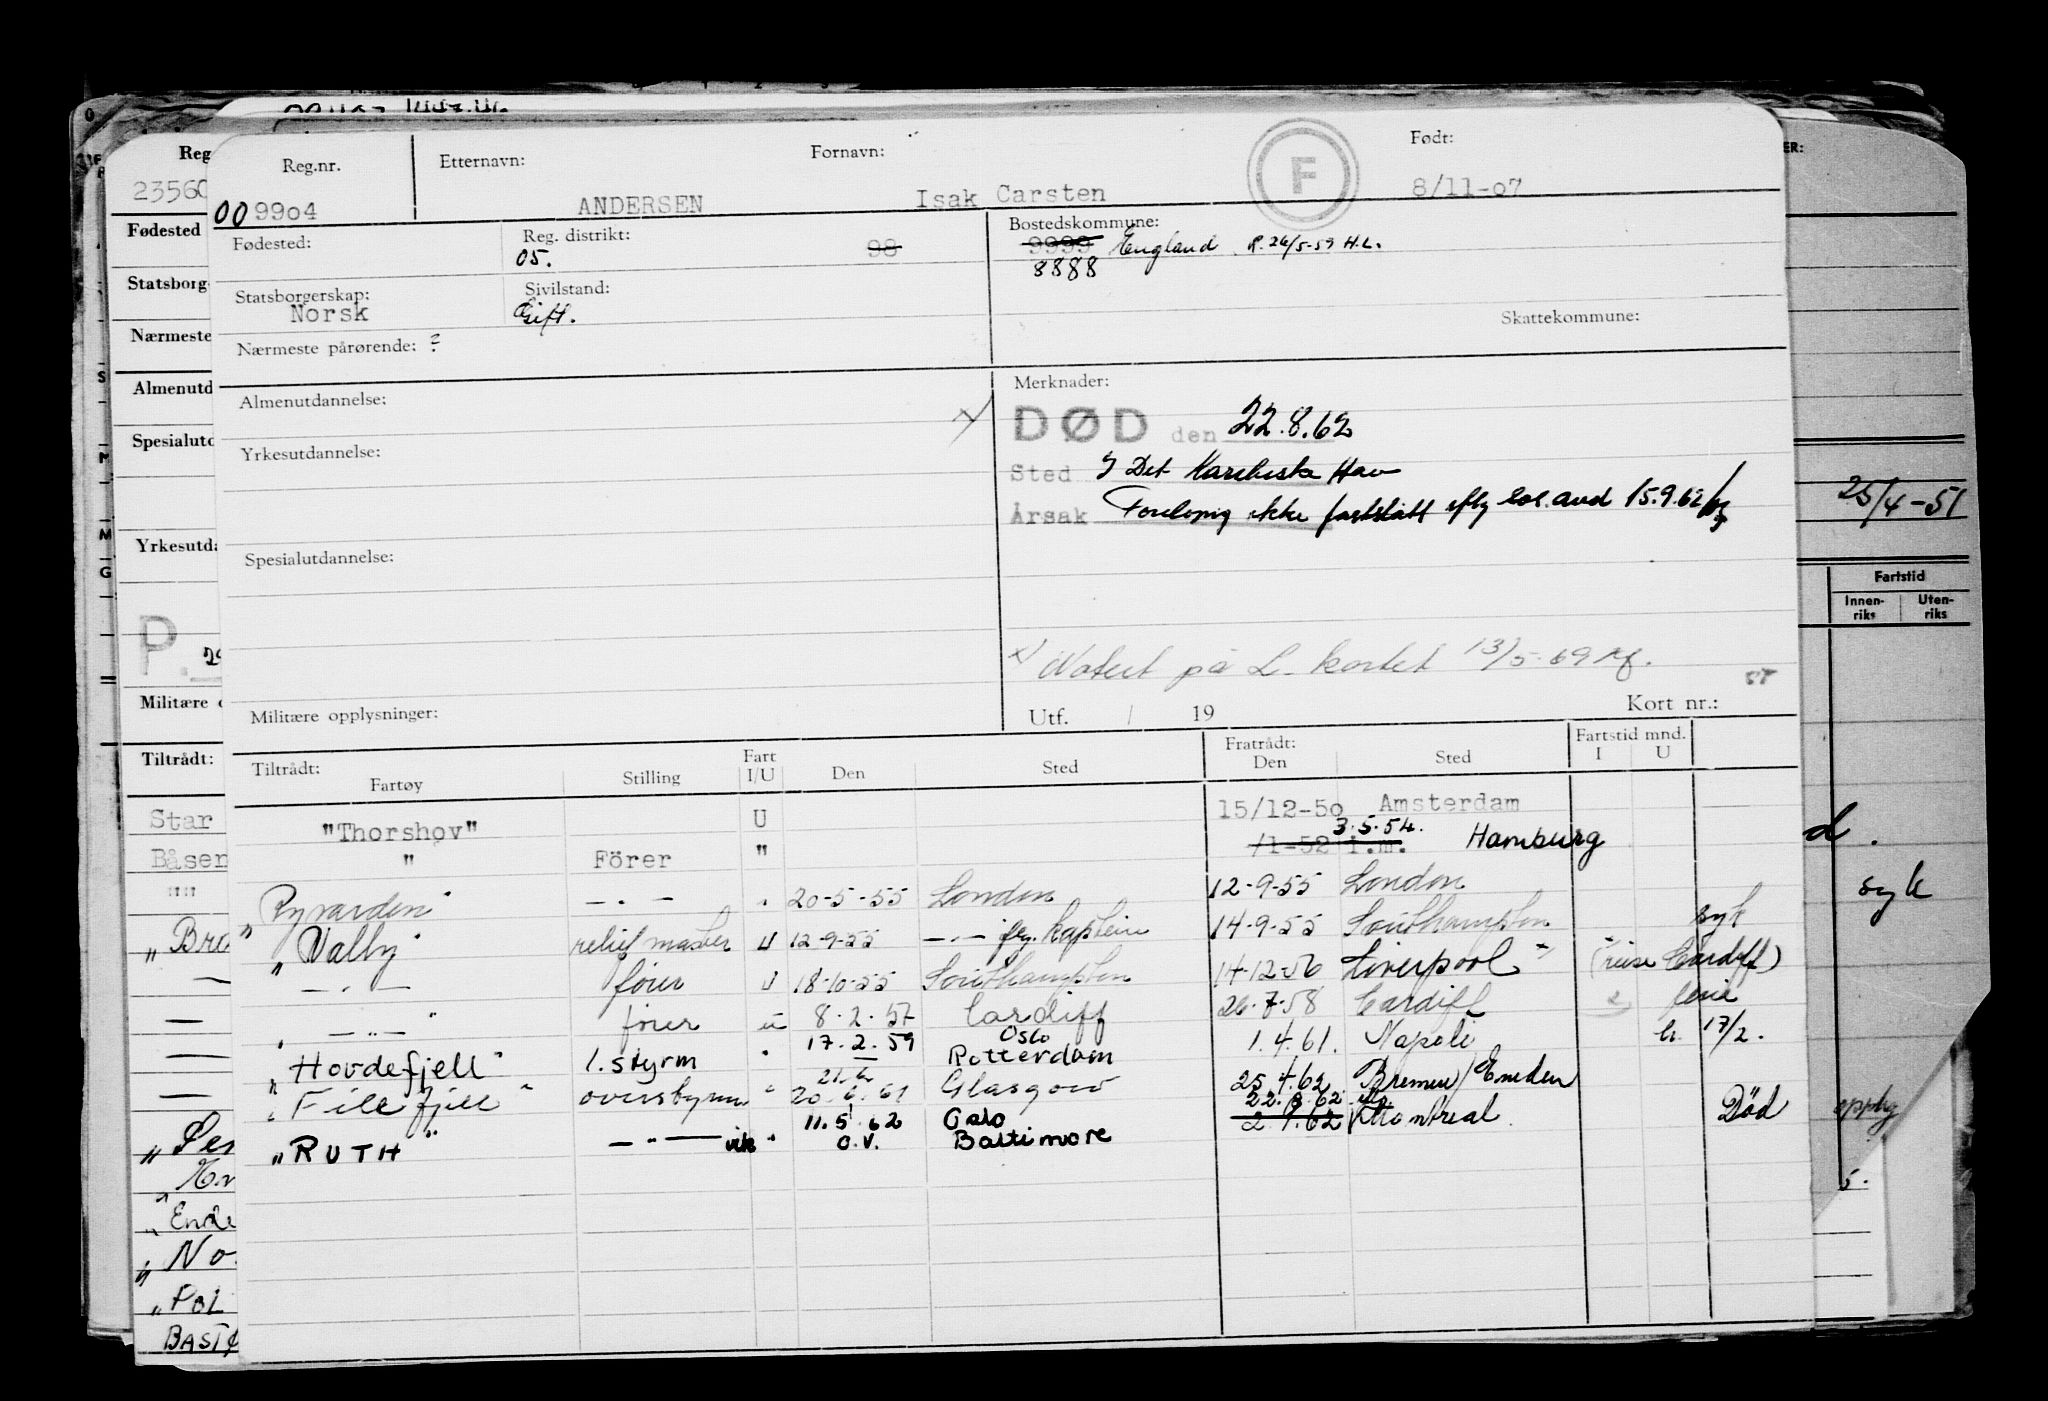 Reg.nr.
Etternavn:
Fornavn:
Født:
009904
ANDERSEN
Isak Carsten
F
8/11-07
Fødested:
Reg. distrikt:
05.
98
Bostedskommune:
9999 England R. 26/5-59 H.L.
8888
Statsborgerskap:
Norsk
Sivilstand:
Gift.
Skattekommune:
Nærmeste pårørende: ?
Almenutdannelse:
Merknader:
DØD den 22.8.62
Yrkesutdannelse:
Sted I Det Karibiske Hav
Årsak Foreløpig ikke fastslått oflg sos. avd 15.9.62
Spesialutdannelse:
x) Notert på L-kortet 13/5-69
Militære opplysninger:
Utf. / 19
Kort nr.:
Tiltrådt:
Fartøy Stilling Fart I/U Den Sted
Fratrådt:
Den Sted
Fartstid mnd.
I U
"Thorshov" U 15/12-50 Amsterdam
" Förer " /1-52 i.m. 3.5.54. Hamburg
" 20-5-55 London 12-9-55 London
"Valby" relief master U 12-9-55 -"- kaptein 14-9-55 Southampton syk
-"- fører U 18-10-55 Southampton 14-12-56 Liverpool (reise Cardiff)
-"- fører u 8.2.57 Cardiff 26.7.58 Cardiff ferie
"Hovdefjell" 1. styrm " 17.2.59 Oslo Rotterdam 1.4.61. Napoli 17/2.
"Fillefjell" overstyrm " 20.6.61 Glasgow 25.4.62 Bremen/Emden
"RUTH" -"- vik " 11.5.62 Oslo o.v. Baltimore 22.8.62 Montreal Død
Reg
23560
Fødested
Statsborg
Nærmeste
Almenutd
Spesialutd
Yrkesutda
P.
Militære
Tiltrådt:
Star
Båsen
"Bra
"Ende
"No
"Pol
BASTØ
25/4-51
Fartstid
Innen-riks
Uten-riks
d.
syk